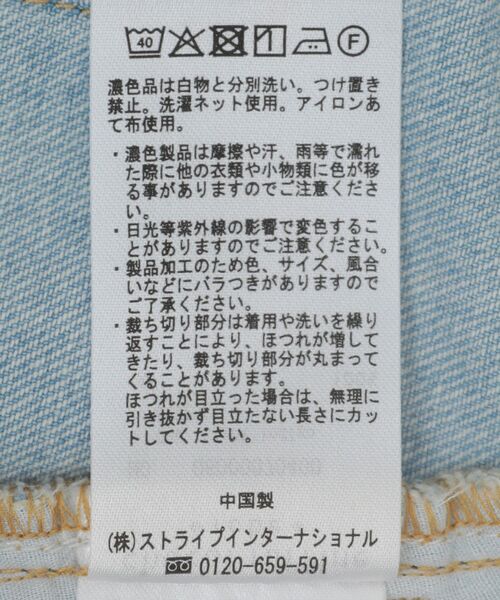 40 F
濃色品は白物と分別洗い。つけ置き
禁止。洗濯ネット使用。アイロンあ
て布使用。
・濃色製品は摩擦や汗、雨等で濡れ
た際に他の衣類や小物類に色が移
る事がありますのでご注意くださ
い。
・日光等紫外線の影響で変色するこ
とがありますのでご注意ください。
・製品加工のため色、サイズ、風合
いなどにバラつきがありますので
ご了承ください。
・裁ち切り部分は着用や洗いを繰り
返すことにより、ほつれが増して
きたり、裁ち切り部分が丸まって
くることがあります。
ほつれが目立った場合は、無理に
引き抜かず目立たない長さにカッ
トしてください。
中国製
(株)ストライプインターナショナル
0120-659-591